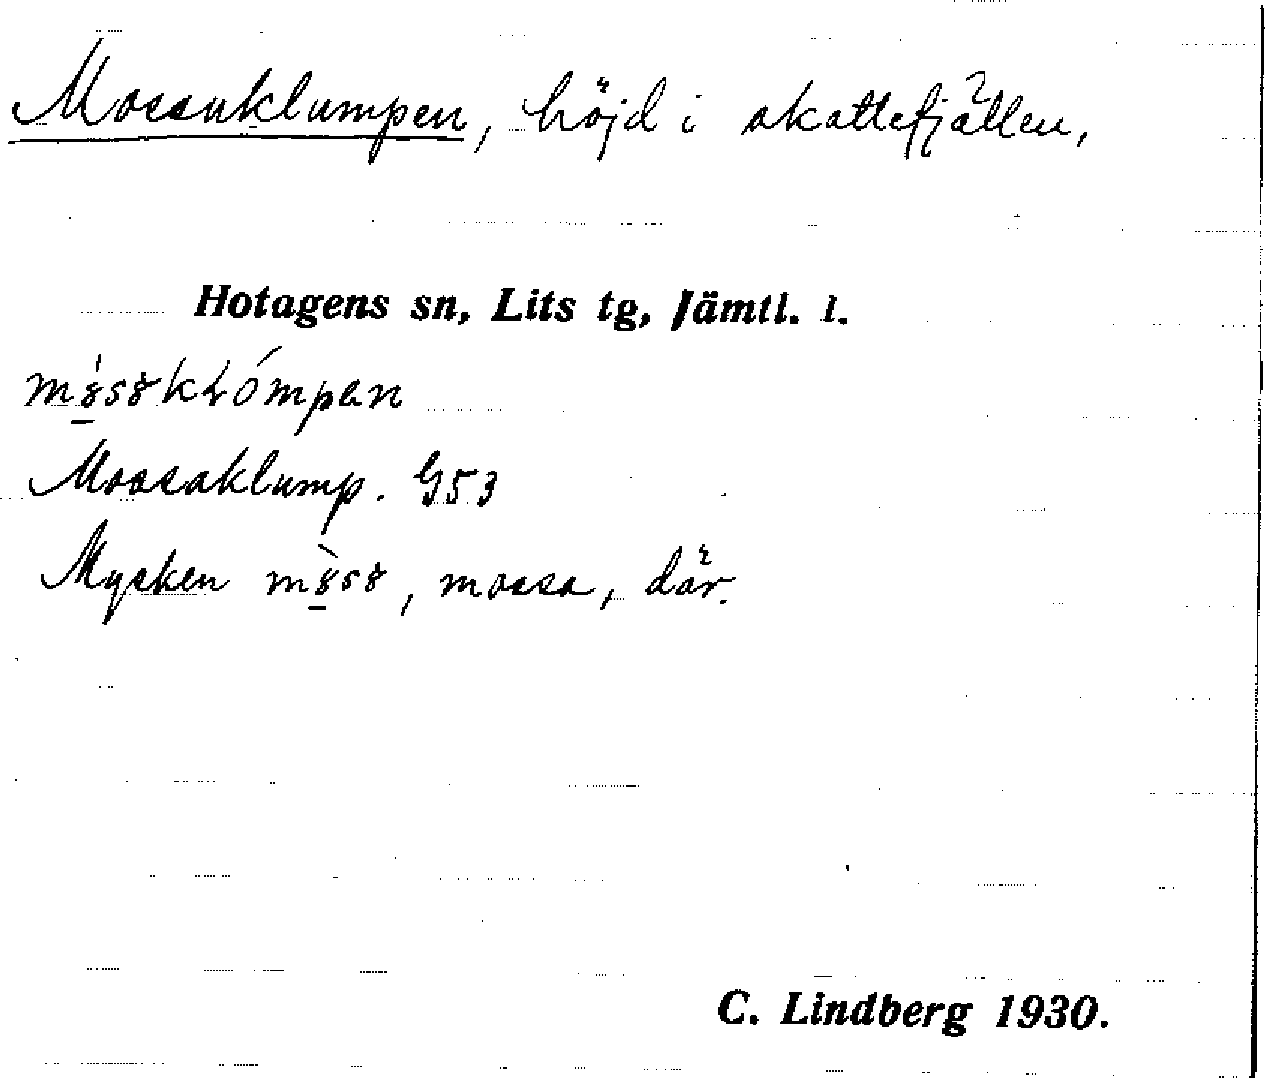 Mossaklumpen, höjd i skattefjällen,
Hotagens sn, Lits tg, Jämtl. l.
Mossaklump. G53
Mycken mo̱̊ss, mossa, där.
C. Lindberg 1930.